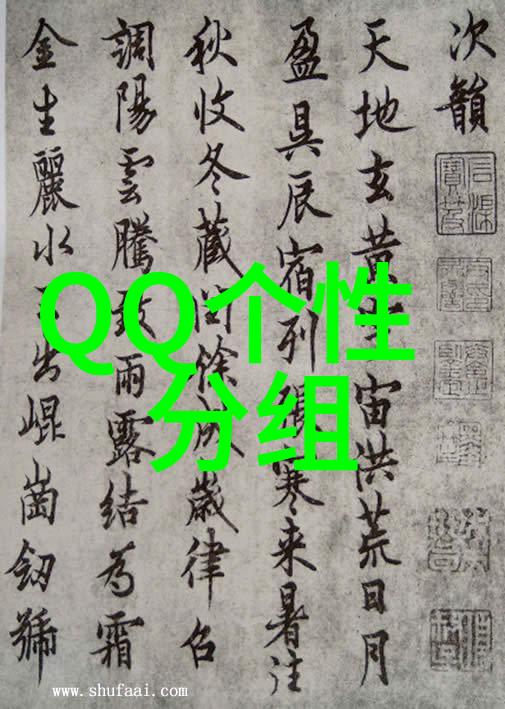 次韻
天地玄黃宇宙洪荒日月
盈昃辰宿列張寒来暑往
秋收冬藏閏餘成歲律召
調陽雲騰致雨露結為霜
金生麗水玉出崐崗劒號
QQ个性
分组
www.shufaai.com